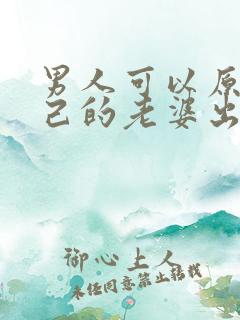 男人可以原
己的老婆出
御心上人
未经同意禁止转载